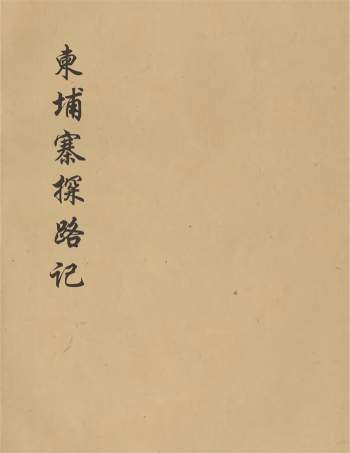 柬埔寨探路记